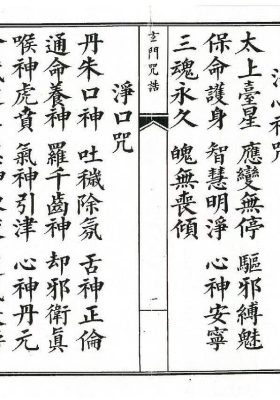 太上臺星 應變無停 驅邪縛魅
保命護身 智慧明淨 心神安寧
三魂永久 魄無喪傾
玄門咒誥
一
淨口咒
丹朱口神 吐穢除氛 舌神正倫
通命養神 羅千齒神 却邪衛眞
喉神虎賁 氣神引津 心神丹元